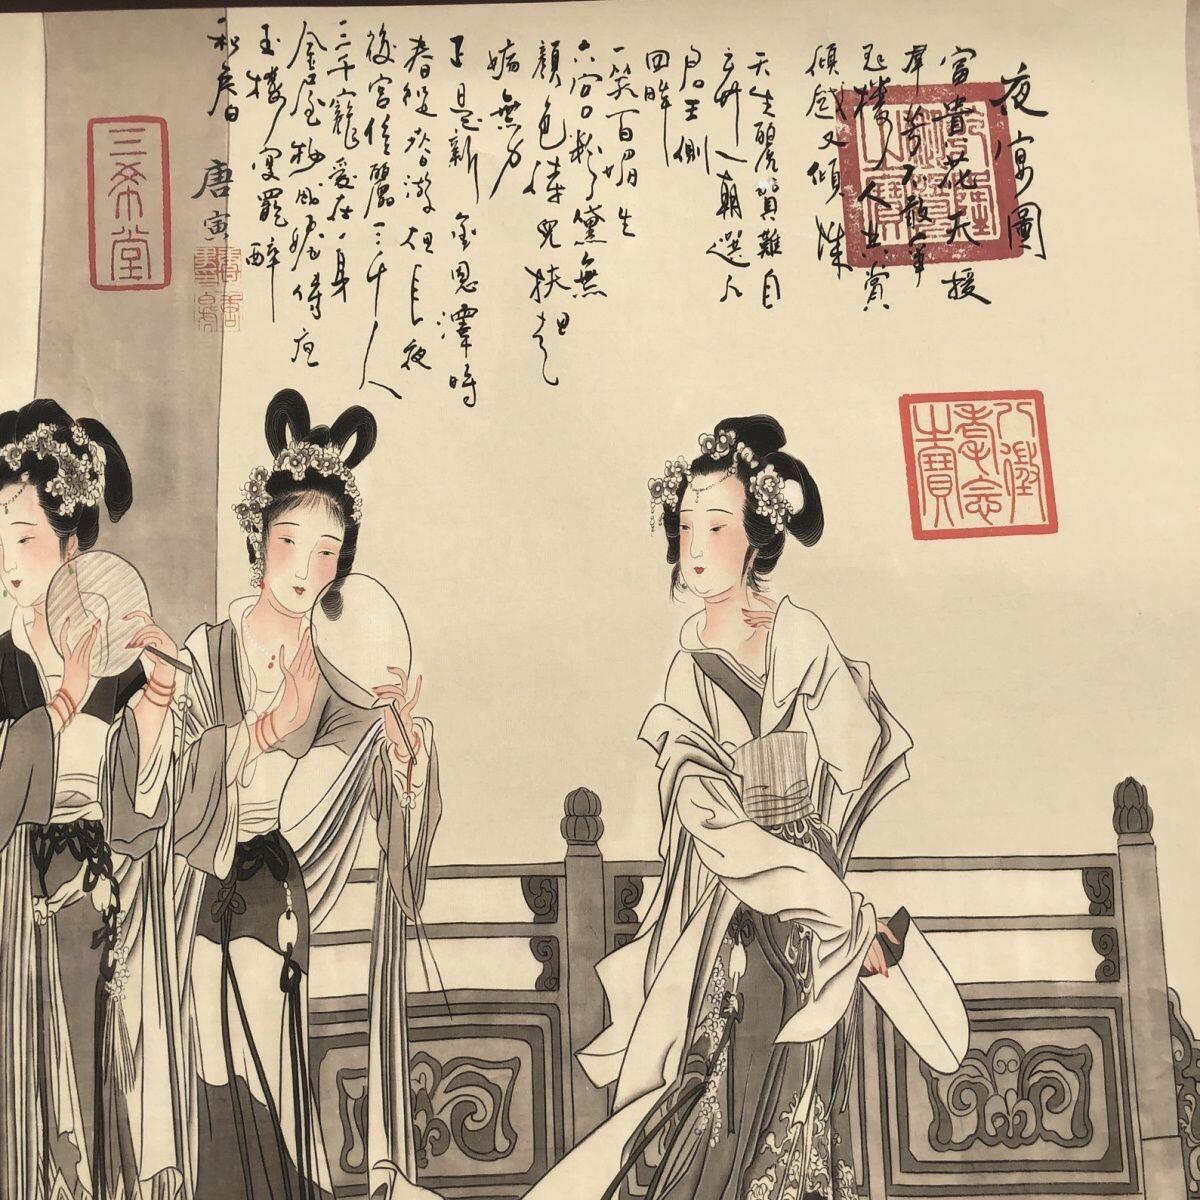 夜宴圖
富貴花天援
群芳不敢爭
玉樓人共賞
傾感又傾城
天生麗質難自
棄一朝選在
君王側
回眸
一笑百媚生
六宮粉黛無
顏色侍兒扶起
嬌無力
正是新承恩澤時
春從春游夜
後宮佳麗三千人
三千寵愛在一身
金屋妝成嬌侍夜
玉樓宴罷醉
和春
唐寅
三希堂
八徵耄念之寶